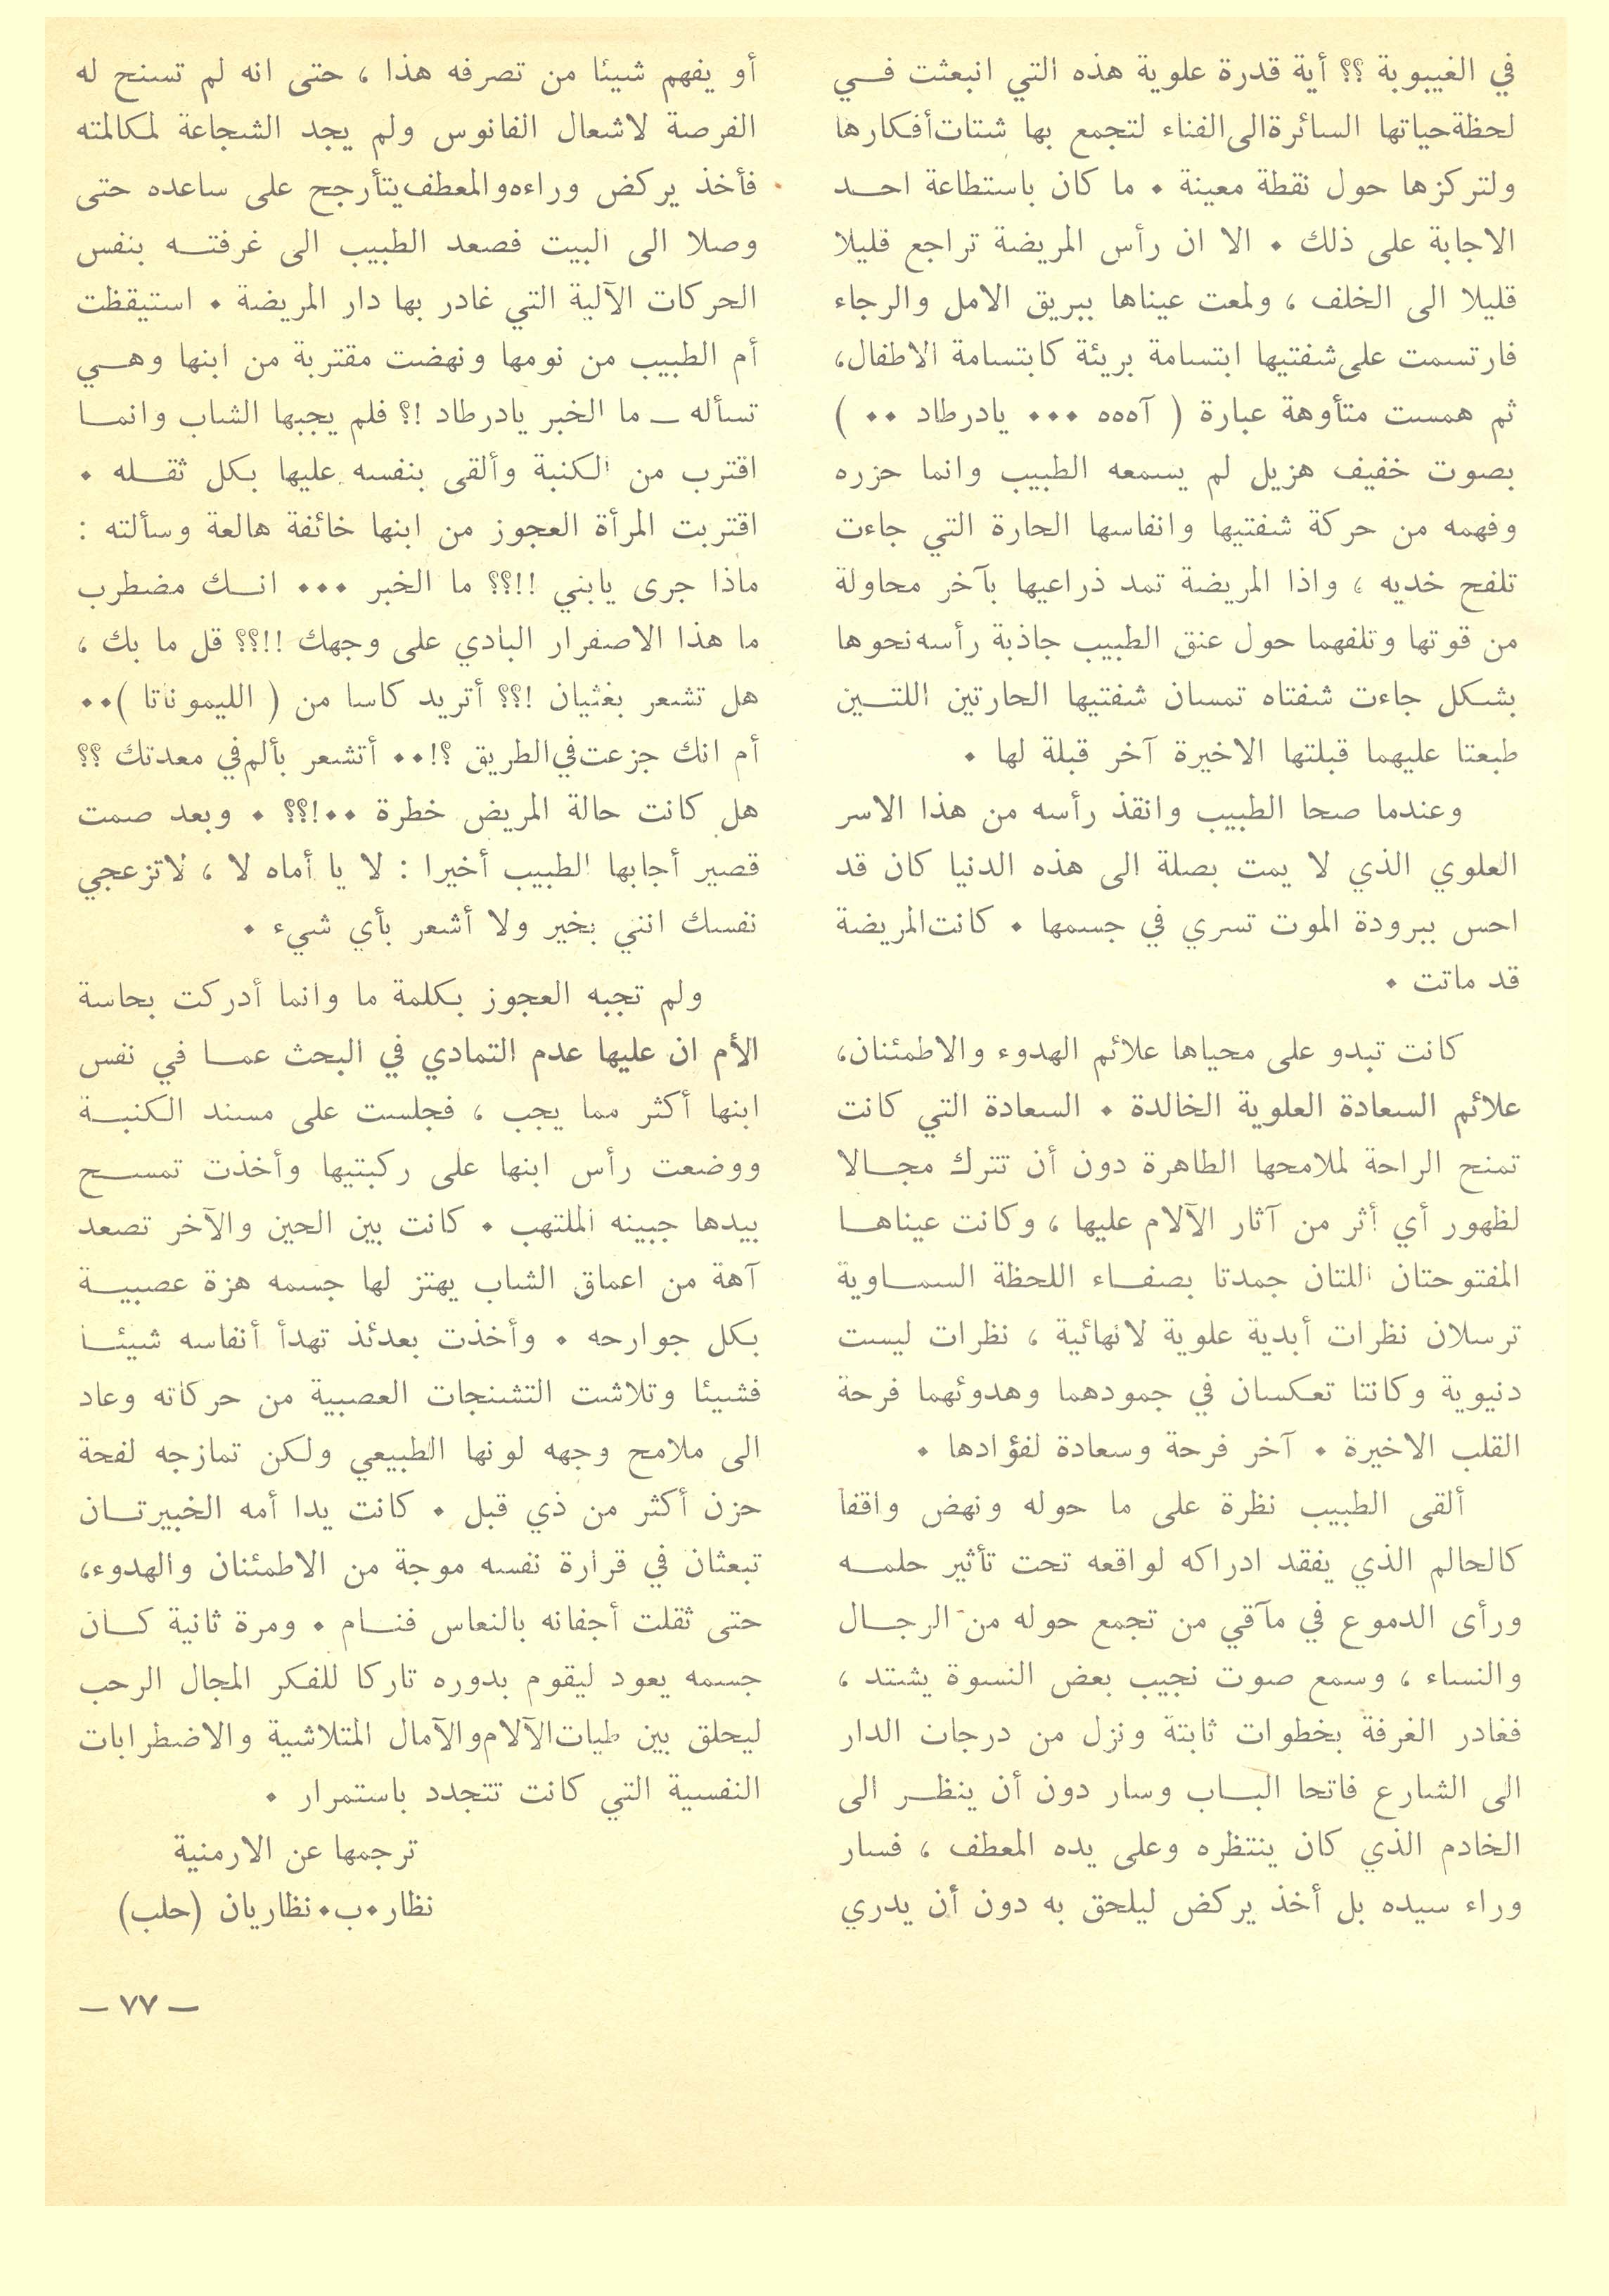 في الغيبوبة ؟؟ أية قدرة علوية هذه التي انبعثت فـــي
لحظة حياتها السائرة الى الفناء لتجمع بها شتات أفكارها
ولتركزها حول نقطة معينة . ما كان باستطاعة احــد
الاجابة على ذلك . الا ان رأس المريضة تراجع قليلا
قليلا الى الخلف ، ولمعت عيناها ببريق الامل والرجاء
فارتسمت على شفتيها ابتسامة بريئة كابتسامة الاطفال،
ثم همست متأوهة عبارة ( آههه ... يادرطاد .. )
بصوت خفيف هزيل لم يسمعه الطبيب وانما حزره
وفهمه من حركة شفتيها وانفاسها الحارة التي جاءت
تلفح خديه ، واذا المريضة تمد ذراعيها بآخر محاولة
من قوتها وتلفهما حول عنق الطبيب جاذبة رأسه نحوها
بشكل جاءت شفتاه تمسان شفتيها الحارتين اللتـــين
طبعتا عليهما قبلتها الاخيرة آخر قبلة لها .
وعندما صحا الطبيب وانقذ رأسه من هذا الاسر
العلوي الذي لا يمت بصلة الى هذه الدنيا كان قد
احس ببرودة الموت تسري في جسمها . كانت المريضة
قد ماتت .
كانت تبدو على محياها علائم الهدوء والاطمئنان،
علائم السعادة العلوية الخالدة . السعادة التي كانت
تمنح الراحة لملامحها الطاهرة دون أن تترك مجــالا
لظهور أي أثر من آثار الآلام عليها ، وكانت عيناهــا
المفتوحتان اللتان جمدتا بصفــاء اللحظة السمــاوية
ترسلان نظرات أبدية علوية لانهائية ، نظرات ليست
دنيوية وكانتا تعكسان في جمودهما وهدوئهما فرحة
القلب الاخيرة . آخر فرحة وسعادة لفؤادها .
ألقى الطبيب نظرة على ما حوله ونهض واقفا
كالحالم الذي يفقد ادراكه لواقعه تحت تأثير حلمــه
ورأى الدموع في مآقي من تجمع حوله من الرجــال
والنساء ، وسمع صوت نجيب بعض النسوة يشتد ،
فغادر الغرفة بخطوات ثابتة ونزل من درجات الدار
الى الشارع فاتحا البــاب وسار دون أن ينظــر الى
الخادم الذي كان ينتظره وعلى يده المعطف ، فسار
وراء سيده بل أخذ يركض ليلحق به دون أن يدري
أو يفهم شيئا من تصرفه هذا ، حتى انه لم تسنح له
الفرصة لاشعال الفانوس ولم يجد الشجاعة لمكالمته
فأخذ يركض وراءه والمعطف يتأرجح على ساعده حتى
وصلا الى البيت فصعد الطبيب الى غرفتــه بنفس
الحركات الآلية التي غادر بها دار المريضة . استيقظت
أم الطبيب من نومها ونهضت مقتربة من ابنها وهــي
تسأله ــ ما الخبر يادرطاد !؟ فلم يجبها الشاب وانمــا
اقترب من الكنبة وألقى بنفسه عليها بكل ثقــله .
اقتربت المرأة العجوز من ابنها خائفة هالعة وسألته :
ماذا جرى يابني !!؟؟ ما الخبر ... انــك مضطرب
ما هذا الاصفرار البادي على وجهك !!؟؟ قل ما بك ،
هل تشعر بغثيان !؟؟ أتريد كاسا من ( الليموناتا )..
أم انك جزعت في الطريق ؟!.. أتشعر بألم في معدتك ؟؟
هل كانت حالة المريض خطرة ..!؟؟ . وبعد صمت
قصير أجابها الطبيب أخيرا : لا يا أماه لا ، لاتزعجي
نفسك انني بخير ولا أشعر بأي شيء .
ولم تجبه العجوز بكلمة ما وانما أدركت بحاسة
الأم ان عليها عدم التمادي في البحث عمــا في نفس
ابنها أكثر مما يجب ، فجلست على مسند الكنبــة
ووضعت رأس ابنها على ركبتيها وأخذت تمســح
بيدها جبينه الملتهب . كانت بين الحين والآخر تصعد
آهة من اعماق الشاب يهتز لها جسمه هزة عصبيــة
بكل جوارحه . وأخذت بعدئذ تهدأ أنفاسه شيئــا
فشيئا وتلاشت التشنجات العصبية من حركاته وعاد
الى ملامح وجهه لونها الطبيعي ولكن تمازجه لفحة
حزن أكثر من ذي قبل . كانت يدا أمه الخبيرتــان
تبعثان في قرارة نفسه موجة من الاطمئنان والهدوء،
حتى ثقلت أجفانه بالنعاس فنــام . ومرة ثانية كــان
جسمه يعود ليقوم بدوره تاركا للفكر المجال الرحب
ليحلق بين طيات الآلام والآمال المتلاشية والاضطرابات
النفسية التي كانت تتجدد باستمرار .
ترجمها عن الارمنية
نظار.ب.نظاريان (حلب)
ــ ٧٧ ــ